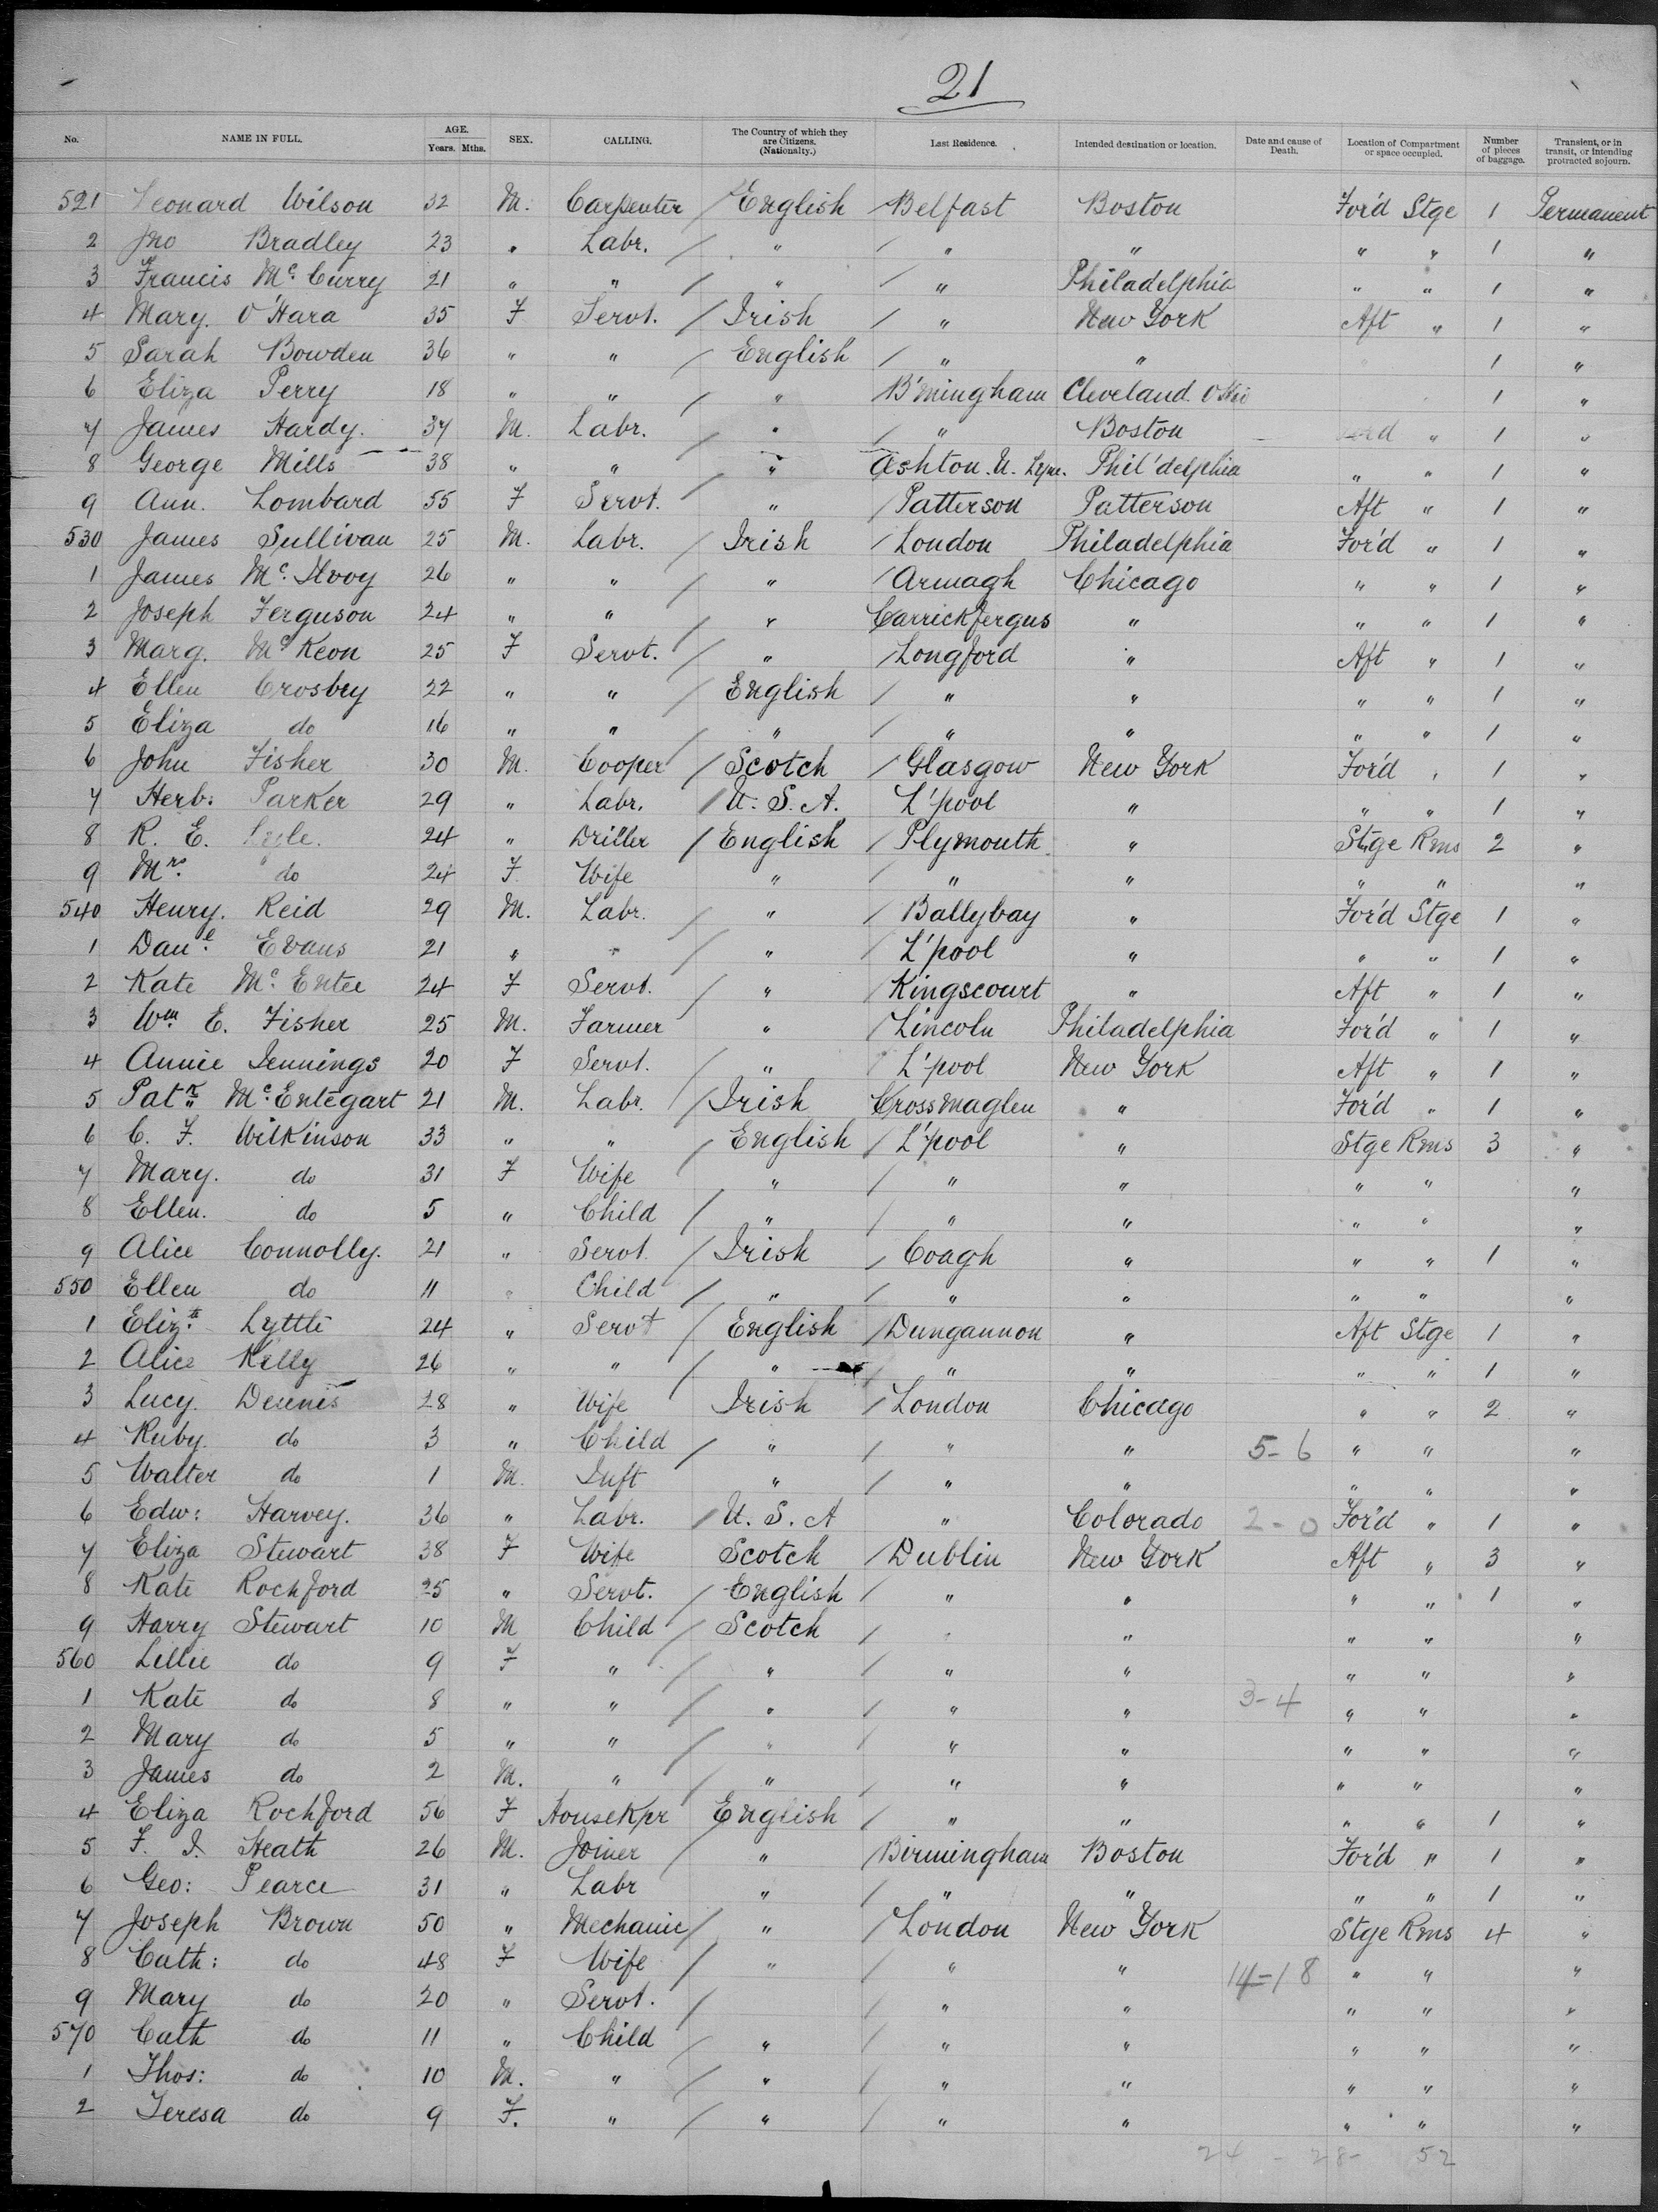 21
No. NAME IN FULL. AGE. Years. Mths. SEX. CALLING. The Country of which they are Citizens. (Nationalty.) Last Residence. Intended destination or location. Date and cause of Death. Location of Compartment or space occupied. Number of pieces of baggage. Transient, or in transit, or intending protracted sojourn.
521 Leonard Wilson 32 M. Carpenter English Belfast Boston For'd Stge 1 Permanent
2 Jno Bradley 23 " Labr. " " " " " 1 "
3 Francis Mc. Curry 21 " " " " Philadelphia " " 1 "
4 Mary. O'Hara 35 F Servt. Irish " New York Aft " 1 "
5 Sarah Bowden 36 " " English " " 1 "
6 Eliza Perry 18 " " " B'mingham Cleveland Ohio 1 "
7 James Hardy. 37 M. Labr. " " Boston For'd " 1 "
8 George Mills 38 " " " Ashton. U. Lyne. Phil'delphia " " 1 "
9 Ann. Lombard 55 F Servt. " Patterson Patterson Aft " 1 "
530 James Sullivan 25 M. Labr. Irish London Philadelphia For'd " 1 "
1 James Mc. 26 " " " Armagh Chicago " " 1 "
2 Joseph Ferguson 24 " " " Carrickfergus " " " 1 "
3 Marg. Mc Keon 25 F Servt. " Longford " Aft " 1 "
4 Ellen Crosbry 22 " " English " " " " 1 "
5 Eliza do 16 " " " " " " " 1 "
6 John Fisher 30 M. Cooper Scotch Glasgow New York For'd " 1 "
7 Herb: Parker 29 " Labr. U. S. A. L'pool " " " 1 "
8 R. E. 24 " Driller English Plymouth " Stge Rms 2 "
9 Mrs. do 24 F Wife " " " " " "
540 Henry. Reid 29 M. Labr. " Ballybay " For'd Stge 1 "
1 Danl. Evans 21 " " " L'pool " " " 1 "
2 Kate Mc. Entee 24 F Servt. " Kingscourt " Aft " 1 "
3 Wm. E. Fisher 25 M. Farmer " Lincoln Philadelphia For'd " 1 "
4 Annie Jennings 20 F Servt. " L'pool New York Aft " 1 "
5 Patk Mc. Entegart 21 M. Labr. Irish Crossmaglen " For'd " 1 "
6 C. F. Wilkinson 33 " " English L'pool " Stge Rms 3 "
7 Mary. do 31 F Wife " " " " " "
8 Ellen. do 5 " Child " " " " " "
9 Alice Connolly. 21 " Servt. Irish Coagh " " " 1 "
550 Ellen do 11 " Child " " " " " "
1 Elizth. Lyttle 24 " Servt English Dungannon " Aft Stge 1 "
2 Alice Kelly 26 " " " " " " " 1 "
3 Lucy. Dennis 28 " Wife Irish London Chicago " " 2 "
4 Ruby. do 3 " Child " " " 5-6 " " "
5 Walter do 1 M. Inft " " " " " "
6 Edw: Harvey. 36 " Labr. U. S. A " Colorado 2-0 For'd " 1 "
7 Eliza Stewart 38 F Wife Scotch Dublin New York Aft " 3 "
8 Kate Rochford 25 " Servt. English " " " " 1 "
9 Harry Stewart 10 M Child Scotch " " " " "
560 Lillie do 9 F " " " " " " "
1 Kate do 8 " " " " " 3-4 " " "
2 Mary do 5 " " " " " " " "
3 James do 2 M. " " " " " " "
4 Eliza Rochford 56 F Housekpr English " " " " 1 "
5 F. J. Heath 26 M. Joiner " Birmingham Boston For'd " 1 "
6 Geo: Pearce 31 " Labr " " " " " 1 "
7 Joseph Brown 50 " Mechanic " London New York Stge Rms 4 "
8 Cath: do 48 F Wife " " " 14-18 " " "
9 Mary do 20 " Servt. " " " " "
570 Cath do 11 " Child " " " " " "
1 Thos: do 10 M. " " " " " " "
2 Teresa do 9 F. " " " " " " "
24 - 28 - 52